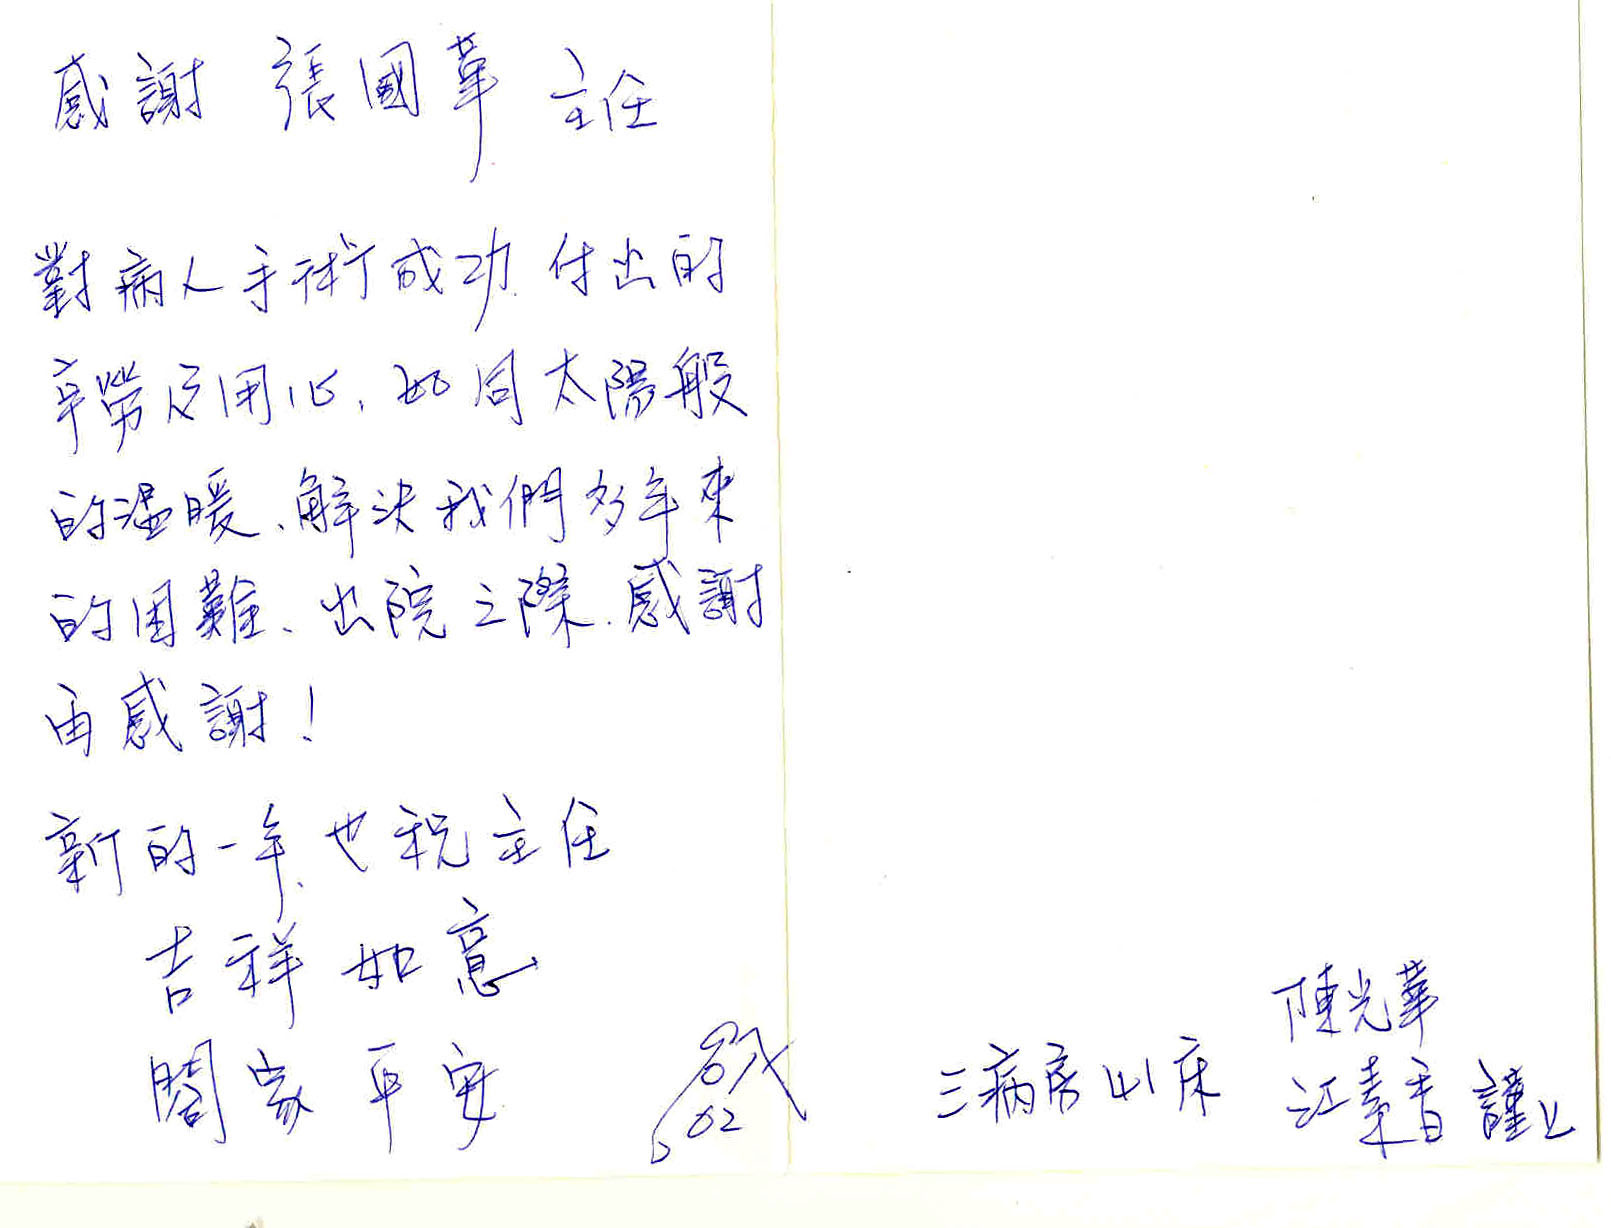 感謝 張國華 主任
對病人手術成功.付出的
辛勞及用心、如同太陽般
的溫暖、解決我們多年來
的困難、出院之際.感謝
再感謝!
新的一年、也祝主任
吉祥如意
闔家平安
陳光華
三病房41床 江素香 謹上